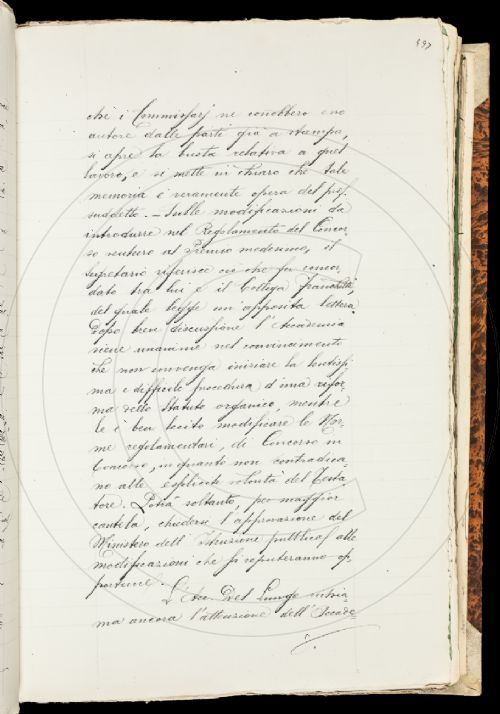 997
chè i Commissarj ne conobbero uno
autore dalle parti già a stampa,
si aprì la busta relativa a quel
lavoro, e si mette in chiaro che tale
memoria è veramente opera del prof.
suddetto. — Sulle modificazioni da
introdurre nel Regolamento del Concor-
so relativo al Premio medesimo, il
segretario riferisce ciò che fu concor
dato tra lui e il Collega
del quale legge un'apposita lettera.
Dopo breve discussione l'Accademia
viene unanime nel convincimento
che non convenga iniziare la lentissi
ma e difficile procedura d'una rifor
ma dello Statuto organico, mentre
le è ben lecito modificare le Nor-
me regolamentari, di Concorso in
Concorso, in quanto non contradica-
no alle esplicite volontà del Testa-
tore. Potrà soltanto, per maggior
cautela, chiedersi l'approvazione del
Ministero dell'Istruzione pubblica alle
modificazioni che si reputeranno op-
portune.
L'Acc. Del Lungo richia-
ma ancora l'attenzione dell'Accade-